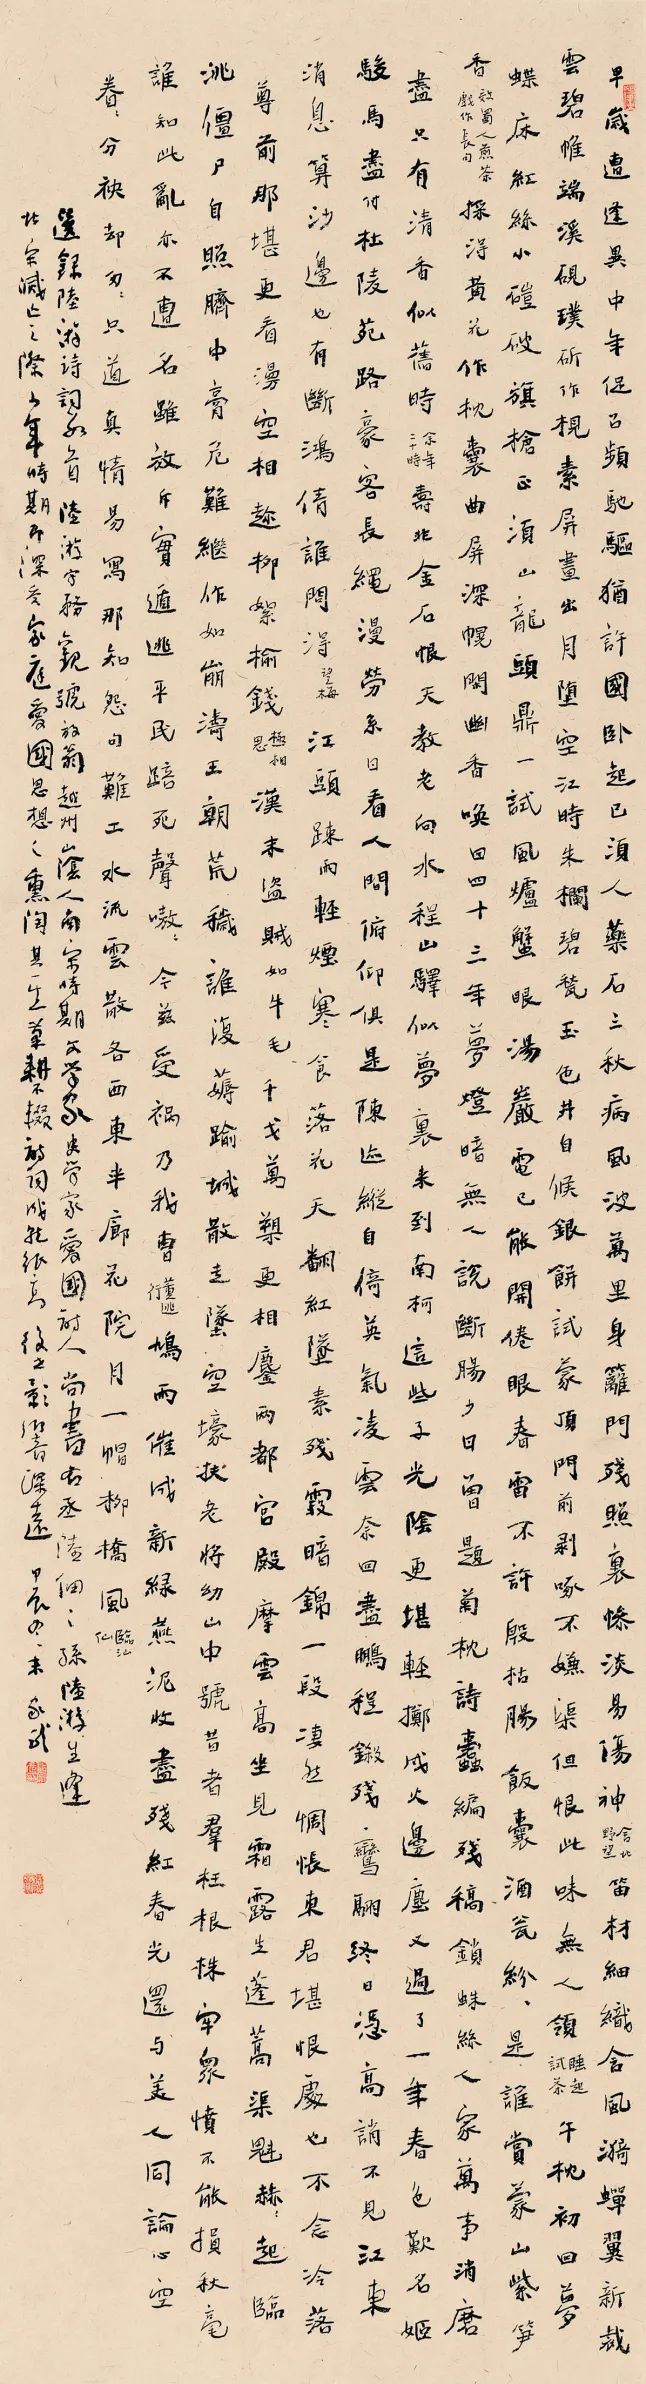 早歲遭逢異中年促召頻馳驅猶許國臥起已須人藥石三秋病風波萬里身籬門殘照裏慘淡易傷神舍北野望笛材細織含風漪蟬翼新裁
雲碧帷端溪硯璞斫作枧素屏畫出月墮空江時朱欄碧甃玉色井自候銀餅試蒙頂門前剥啄不嫌渠但恨此味無人領睡起試茶午枕初回夢
蝶床紅絲小磑破旗槍正須山龍頭鼎一試風爐蟹眼湯巖電已能開倦眼春雷不許殷枯腸飯囊酒瓮紛、是誰賞蒙山紫笋
香效蜀人煎茶戲作長句採得黃花作枕囊曲屏深幌閟幽香喚回四十三年夢燈暗無人說斷腸少日曾題菊枕詩蠹編殘稿鎖蛛絲人家萬事消磨
盡只有清香似舊時余年二十時壽非金石恨天教老向水程山驛似夢裏來到南柯這些子光陰更堪輕擲戍火邊塵又過了一年春色歎名姬
駿馬盡付杜陵苑路豪客長繩漫勞系日看人間俯仰俱是陳迹縱自倚英氣凌雲奈回盡鵬程鎩殘、鸞翮終日憑高誚不見江東
消息算沙邊也有斷鴻倩誰問得望梅江頭疎雨輕煙寒食落花天翻紅墜素殘霞暗錦一段凄然惆悵東君堪恨處也不念冷落
尊前那堪更看漫空相趁柳絮榆錢極相思漢末盜賊如牛毛千戈萬槊更相鏖兩都宮殿摩雲高坐見霜露生蓬蒿渠魁赫、起臨
洮僵尸自照臍中膏危難繼作如崩濤王朝荒穢誰復薅踰城散走墜空壕扶老將幼山中號昔者羣枉根株牢衆憤不能損秋毫
誰知此亂亦不遭名雖放斥實遁逃平民踣死聲嗷、今茲受禍乃我曹董逃行鳩雨催成新綠燕泥收盡殘紅春光還与美人同論心空
眷、分袂却匆、只道真情易寫那知怨句難工水流雲散各西東半廊花院月一帽柳橋風臨江仙
選錄陸游詩詞數首陸游字務觀號放翁越州山陰人南宋時期文學家史學家愛國詩人尚書右丞陸佃之孫陸游生逢
北宋滅亡之際少年時期即深受家庭愛國思想之熏陶其一生筆耕不輟詩詞成就很高後之影响音深遠甲辰冬末